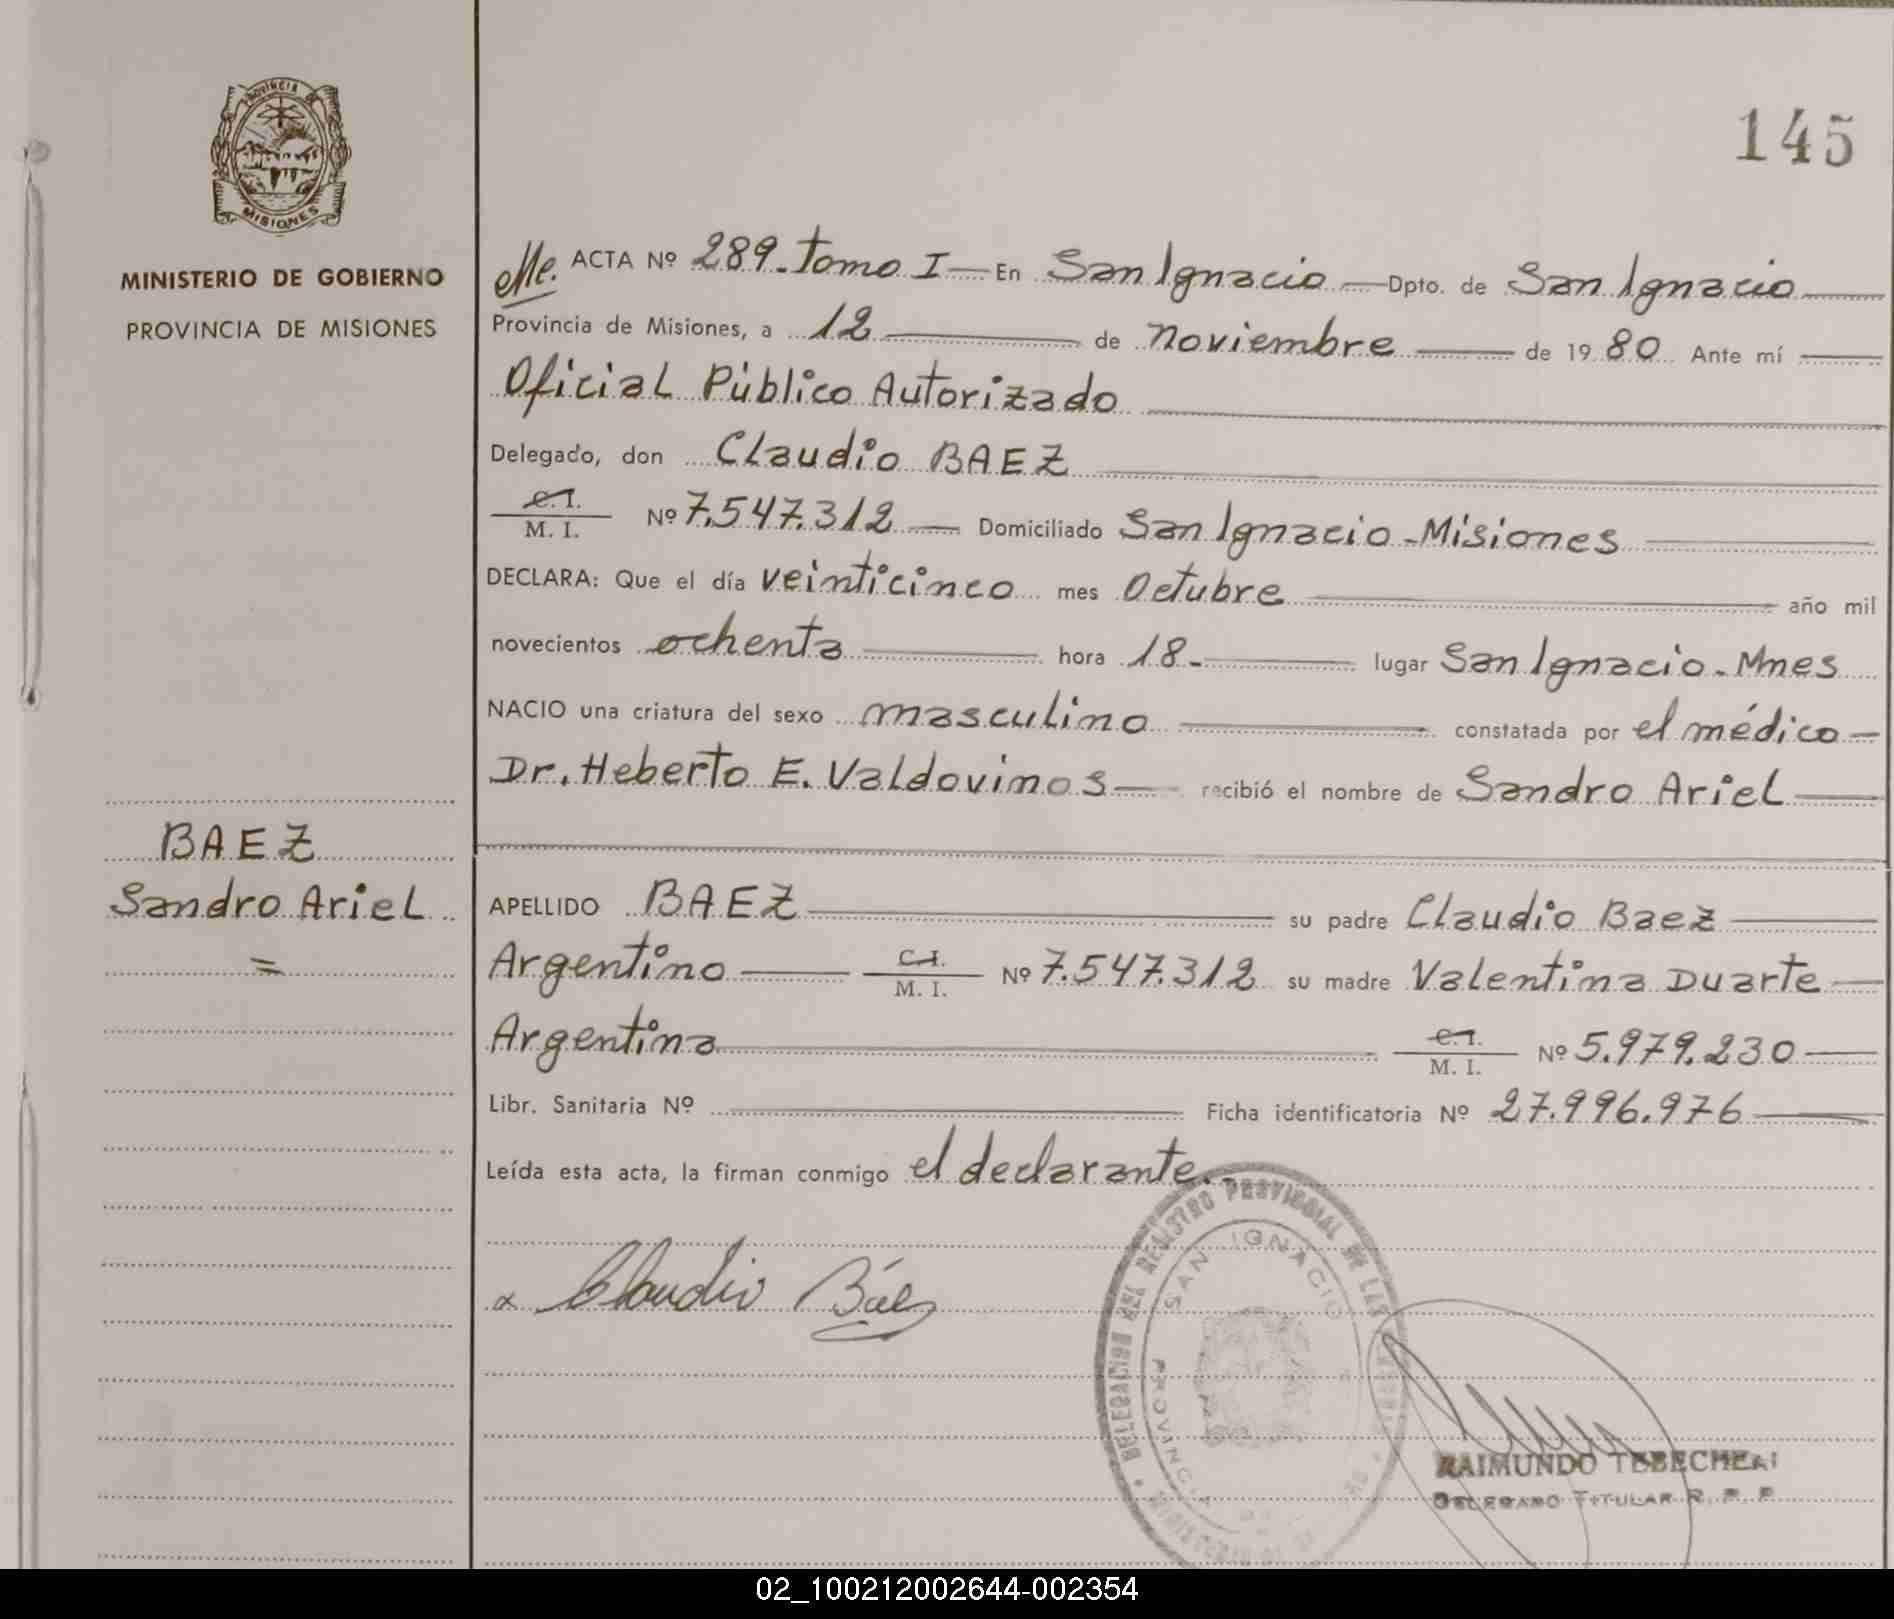 PROVINCIA DE
MISIONES
MINISTERIO DE GOBIERNO
PROVINCIA DE MISIONES
145
ACTA Nº 289. Tomo I En San Ignacio Dpto. de San Ignacio
Provincia de Misiones, a 12 de Noviembre de 1980 Ante mí
Oficial Público Autorizado
Delegado, don Claudio BAEZ
C.I.
M. I. Nº 7.547.312 Domiciliado San Ignacio - Misiones
DECLARA: Que el día veinticinco mes Octubre año mil
novecientos ochenta hora 18.- lugar San Ignacio - Mnes
NACIO una criatura del sexo masculino constatada por el médico
Dr. Heberto E. Valdovinos recibió el nombre de Sandro Ariel
BAEZ
Sandro Ariel
=
APELLIDO BAEZ su padre Claudio Baez
Argentino C.I.
M. I. Nº 7.547.312 su madre Valentina Duarte
Argentina C.I.
M. I. Nº 5.979.230
Libr. Sanitaria Nº Ficha identificatoria Nº 27.996.976
Leída esta acta, la firman conmigo el declarante.
Claudio Báez
DELEGACION DEL REGISTRO PROVINCIAL DE LAS
SAN IGNACIO
PROVINCIA
MINISTERIO DE
RAIMUNDO
DELEGADO TITULAR R. P. P.
02_100212002644-002354